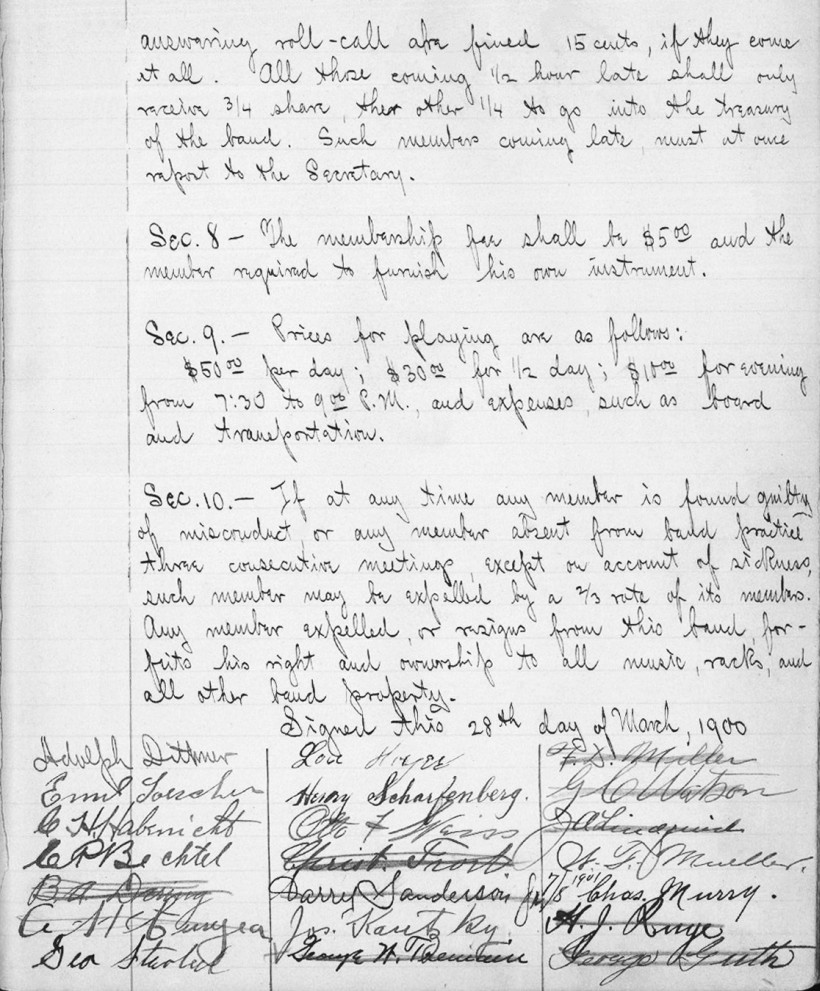 answaring roll-call are fined 15 cents, if they come
at all. All those coming 1/2 hour late shall only
receive 3/4 share, ther other 1/4 to go into the treasury
of the band. Such members coming late, must at once
raport to the Secretary.
Sec. 8 – The membership fee shall be $5 00 and the
member required to furnish his own instrument.
Sec. 9. – Prices for playing are as follows:
$50 00 per day; $30 00 for 1/2 day; $10 00 for evening
from 7:30 to 9 00 P.M., and expenses, such as board
and transportation.
Sec. 10. – If at any time any member is found guilty
of misconduct, or any member absent from band practice
three consecutive meetings, except on account of sickness,
such member may be expelled by a 2/3 vote of its members.
Any member expelled, or resigns from this band, for-
feits his right and ownership to all music, racks, and
all other band property.
Signed this 28th day of March, 1900
Adolph Dittmer
Emil Loescher
C H Habenicht
C P Bechtel
Geo
Lou
Henry Scharfenberg.
Otto F Weiss
Christ. Trost
Harry Sanderson Jr.
Jos. Kautzky
George H.
F. D. Miller
G C Watson
J A Lindquist
W. F. Mueller.
7/8 1901 Chas. Murry.
H. J. Ruge
George Guth